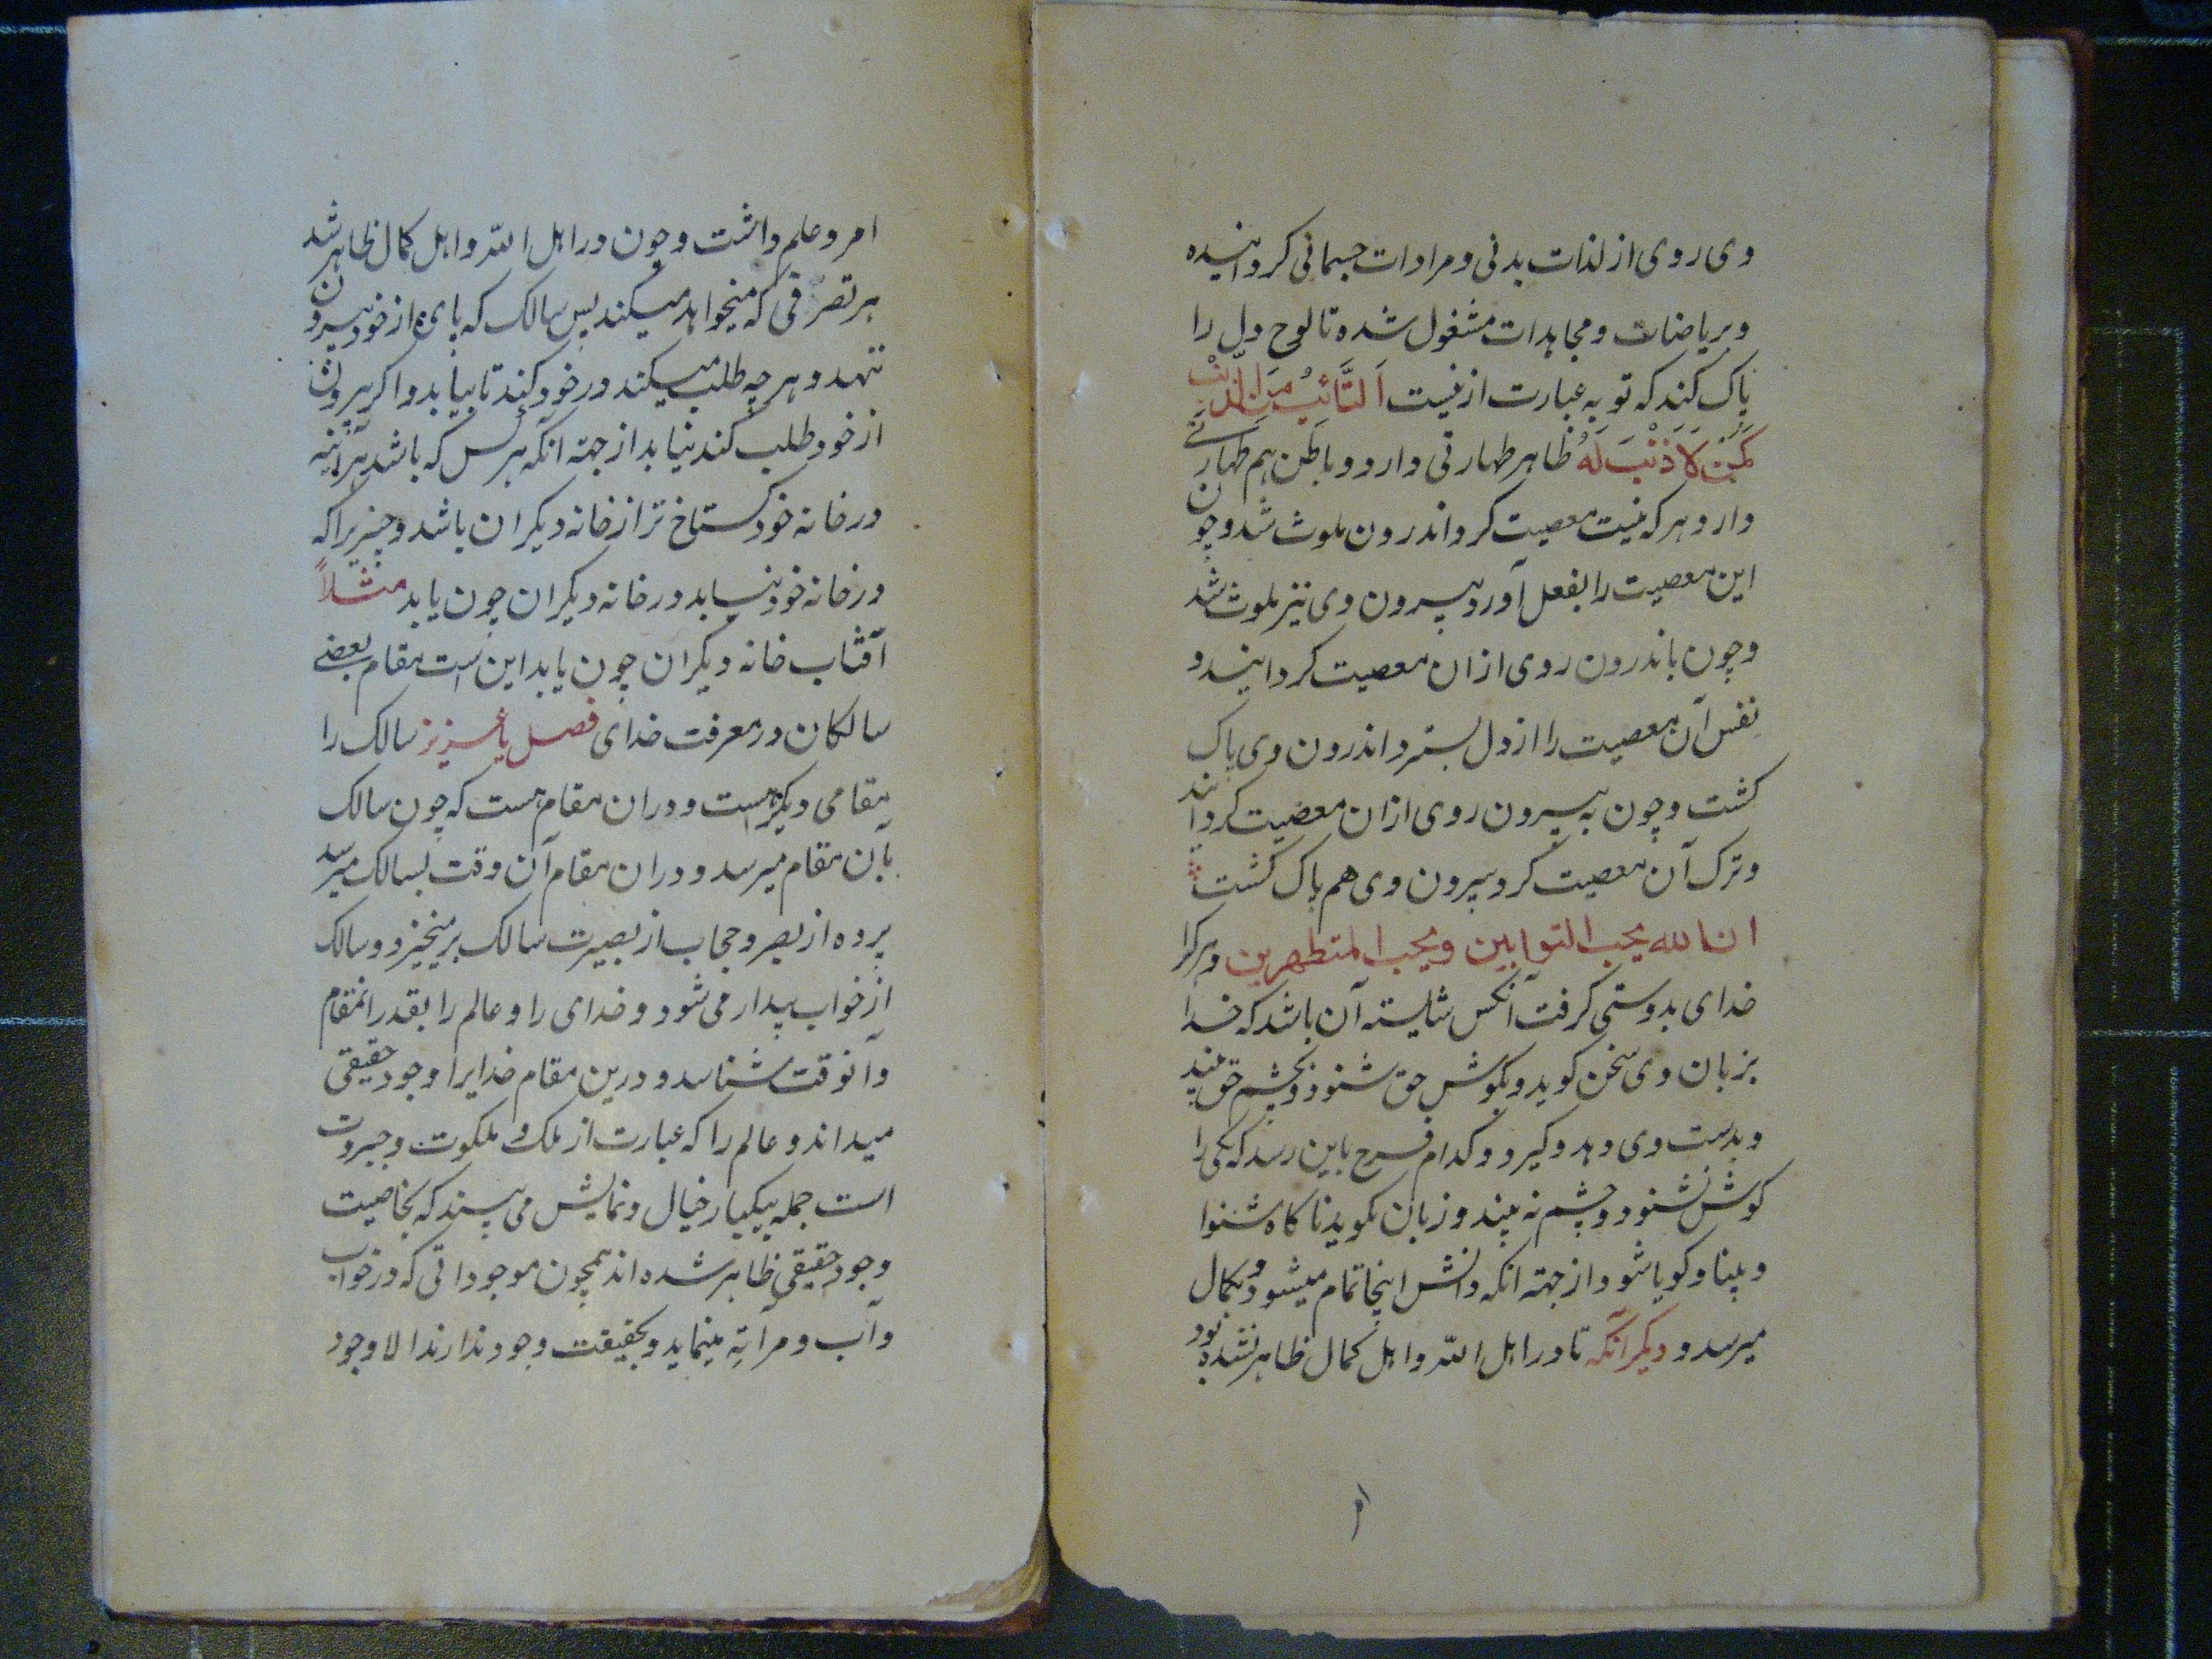 وی روی از لذات بدنی و مرادات جسمانی کردانیده
و بریاضات و مجاهدات مشغول شده تا لوح دل را
پاک کند که توبه عبارت ازنیست اَلتَّائِبُ مِنَ الذَّنْبِ
کَمَنْ لَا ذَنْبَ لَهُ ظاهر طهارتی دارد و باطن هم طهارتے
دارد هرکه نیت معصیت کرد اندرون ملوث شد و چون
این معصیت را بفعل آورد بیرون وی نیز ملوث شد
و چون باندرون روی ازان معصیت کردانید و
نفس آن معصیت را از دل بسترد اندرون وی پاک
کشت و چون به بیرون روی ازان معصیت کرداند
و ترک آن معصیت کرد بیرون وی هم پاک کشت
ان الله یحب التوابین و یحب المتطهرین و هرکرا
خدای بدوستی کرفت آنکس شایسته آن باشد که خدا
بزبان وی سخن کوید و بکوش حق شنود و بچشم حق بیند
و بدست وی دهد و کیرد و کدام فرح باین رسد که یکی را
کوش نشنود و چشم نه بیند و زبان نکوید ناکاه شنوا
و بینا و کویا شود از جهته انکه دانش اینجا تمام میشود و بکمال
میرسد و دیکر آنکه تا در اهل الله و اهل کمال ظاهر نشده بود
امر و علم داشت و چون در اهل الله و اهل کمال ظاهر شد
هر تصرفی که میخواهد میکند پس سالک که پای از خود بیرون
ننهد و هر چه طلب میکند در خود کند تا بیابد و اکر بیرون
از خود طلب کند نیابد از جهته آنکه هر کس که باشد هر آینه
در خانه خود کستاخ تر از خانه دیکران باشد و چیزیرا که
در خانه خود نیابد در خانه دیکران چون یابد مثلاً
آفتاب خانه دیکران چون یابد این است مقام بعضے
سالکان در معرفت خدای فصل یا عزیز سالک را
مقامی دیکر هست و دران مقام هست که چون سالک
بآن مقام میرسد و دران مقام آن وقت بسالک میرسد
پرده از بصر و حجاب از بصیرت سالک برمیخیزد و سالک
از خواب بیدار می شود و خدای را و عالم را بقدر انمقام
و آنوقت شناسد و درین مقام خدایرا وجود حقیقی
میداند و عالم را که عبارت از ملک و ملکوت و جبروت
است جمله بیکبار خیال و نمایش می بیند که بخاصیت
وجود حقیقی ظاهر شده اند همچون موجوداتی که در خواب
و آب و مرآته مینماید و بحقیقت وجود ندارند الا وجود